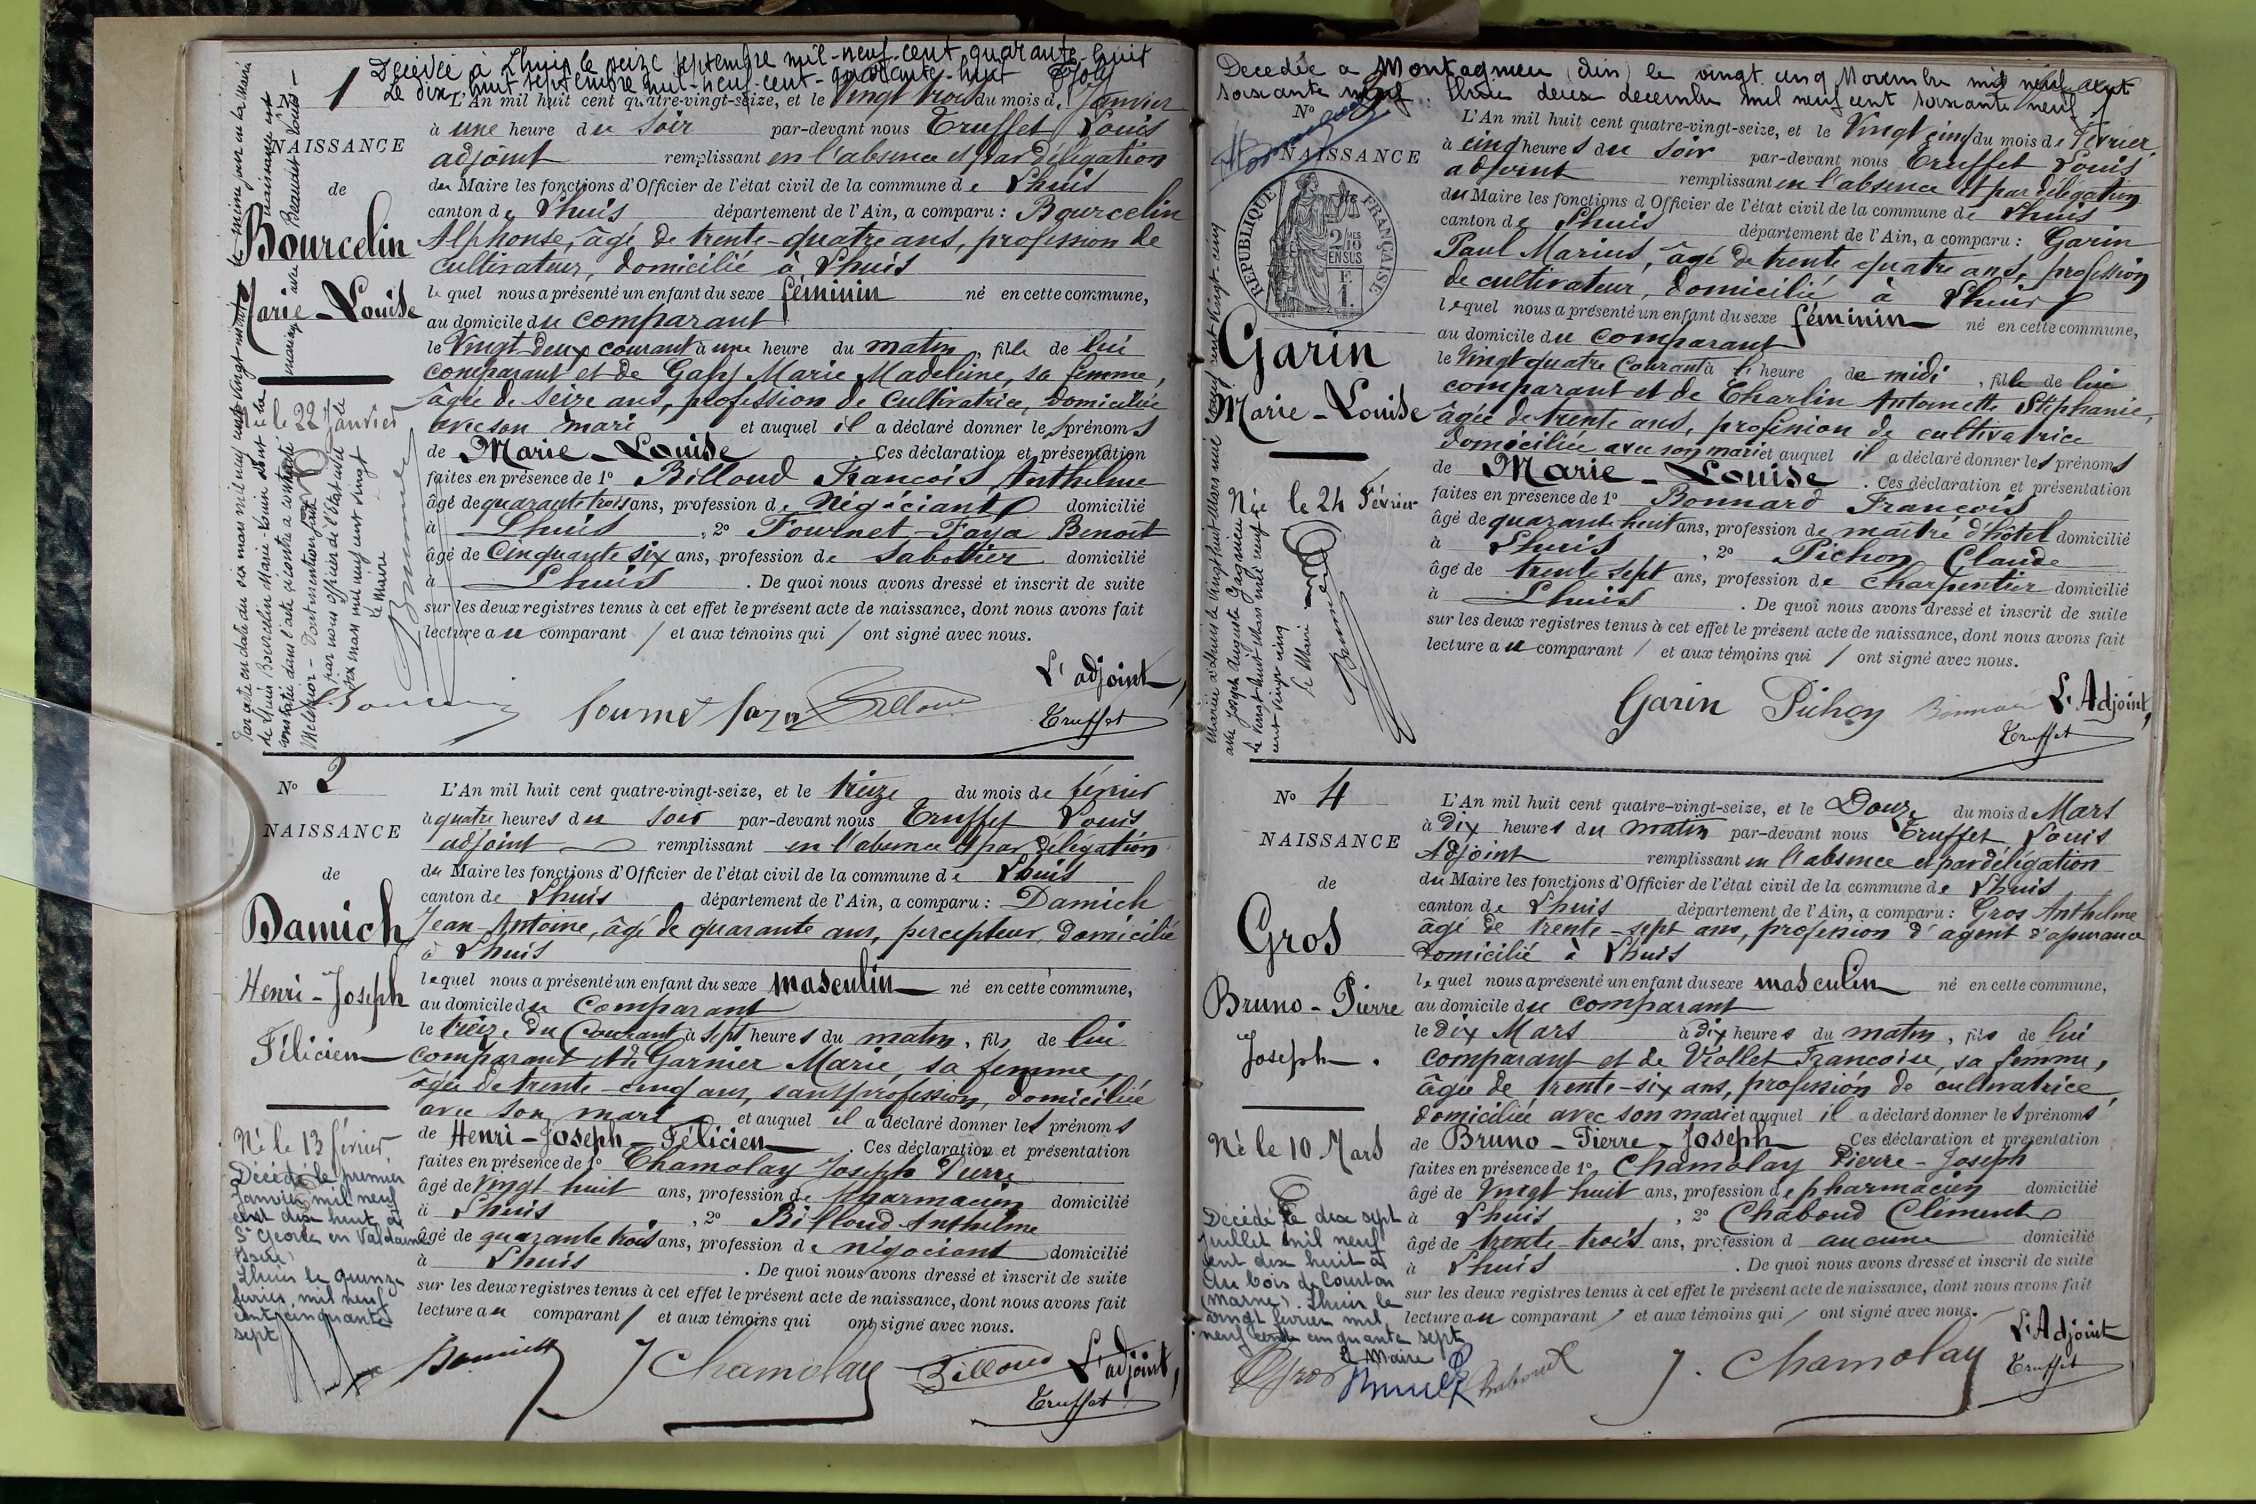 Décédée à Lhuis le seize septembre mil-neuf-cent-quarante-huit
Le dix-huit septembre mil-neuf-cent-quarante-huit
No 1
NAISSANCE
de
Bourcelin
Marie-Louise
le 22 Janvier
L'An mil huit cent quatre-vingt-seize, et le vingt trois du mois de Janvier
à une heure du soir par-devant nous Truffet Louis
adjoint remplissant en l'absence et par délégation
du Maire les fonctions d'Officier de l'état civil de la commune de Lhuis
canton de Lhuis département de l'Ain, a comparu : Bourcelin
Alphonse, âgé de trente-quatre ans, profession de
cultivateur, domicilié à Lhuis
lequel nous a présenté un enfant du sexe féminin né en cette commune,
au domicile du comparant
le vingt-deux courant à une heure du matin, fille de lui
comparant et de Marie Madeleine, sa femme,
âgée de seize ans, profession de cultivatrice, domiciliée
avec son mari et auquel il a déclaré donner les prénoms
de Marie-Louise. Ces déclaration et présentation
faites en présence de 1o Billoud François Anthelme
âgé de quarante trois ans, profession de Négociant domicilié
à Lhuis, 2o Fournet-Faya Benoît
âgé de cinquante six ans, profession de sabottier domicilié
à Lhuis. De quoi nous avons dressé et inscrit de suite
sur les deux registres tenus à cet effet le présent acte de naissance, dont nous avons fait
lecture au comparant / et aux témoins qui / ont signé avec nous.
L'adjoint,
Fournet faya Billoud
Truffet
No 2
NAISSANCE
de
Damich
Henri-Joseph
Félicien
Né le 13 février
Décédé le premier
Janvier mil neuf
cent dix huit à
St Geoirs en Valdaine
(Isère)
Lhuis le quinze
février mil neuf
cent cinquante
sept
L'An mil huit cent quatre-vingt-seize, et le treize du mois de février
à quatre heures du soir par-devant nous Truffet Louis
adjoint remplissant en l'absence et par délégation
du Maire les fonctions d'Officier de l'état civil de la commune de Lhuis
canton de Lhuis département de l'Ain, a comparu : Damich
Jean-Antoine, âgé de quarante ans, percepteur, domicilié
à Lhuis
lequel nous a présenté un enfant du sexe masculin né en cette commune,
au domicile du comparant
le treize du courant à sept heures du matin, fils de lui
comparant et de Garnier Marie, sa femme,
âgée de trente-cinq ans, sans profession, domiciliée
avec son mari et auquel il a déclaré donner les prénoms
de Henri-Joseph-Félicien. Ces déclaration et présentation
faites en présence de 1o Chamolay Joseph Pierre
âgé de vingt huit ans, profession de pharmacien domicilié
à Lhuis, 2o Billoud Anthelme
âgé de quarante trois ans, profession de négociant domicilié
à Lhuis. De quoi nous avons dressé et inscrit de suite
sur les deux registres tenus à cet effet le présent acte de naissance, dont nous avons fait
lecture au comparant / et aux témoins qui ont signé avec nous.
Damich J Chamolay Billoud L'adjoint,
Truffet
Décédée à Montagnieu (Ain) le vingt cinq Novembre mil neuf cent
soixante neuf. Lhuis deux decembre mil neuf cent soixante neuf
No
NAISSANCE
RÉPUBLIQUE FRANÇAISE
2/10 EN SUS
Garin
Marie-Louise
Née le 24 Février
L'An mil huit cent quatre-vingt-seize, et le vingt cinq du mois de février
à cinq heures du soir par-devant nous Truffet Louis
adjoint remplissant en l'absence et par délégation
du Maire les fonctions d'Officier de l'état civil de la commune de Lhuis
canton de Lhuis département de l'Ain, a comparu : Garin
Paul Marius, âgé de trente quatre ans, profession
de cultivateur, domicilié à Lhuis
lequel nous a présenté un enfant du sexe féminin né en cette commune,
au domicile du comparant
le vingt quatre courant à heure de midi, fille de lui
comparant et de Charlin Antoinette Stéphanie,
âgée de trente ans, profession de cultivatrice
domiciliée avec son mari et auquel il a déclaré donner les prénoms
de Marie-Louise. Ces déclaration et présentation
faites en présence de 1o Bonnard François
âgé de quarante huit ans, profession de maître d'hôtel domicilié
à Lhuis, 2o Pichon Claude
âgé de trente sept ans, profession de charpentier domicilié
à Lhuis. De quoi nous avons dressé et inscrit de suite
sur les deux registres tenus à cet effet le présent acte de naissance, dont nous avons fait
lecture au comparant / et aux témoins qui / ont signé avec nous.
Garin Pichon Bonnard L'Adjoint,
Truffet
No 4
NAISSANCE
de
Gros
Bruno-Pierre
Joseph.
Né le 10 Mars
Décédé le dix sept
Juillet mil neuf
cent dix huit à
au bois de Courton
(Marne). Lhuis le
vingt février mil
neuf cent cinquante sept
Le Maire
L'An mil huit cent quatre-vingt-seize, et le Douze du mois de Mars
à dix heures du matin par-devant nous Truffet Louis
Adjoint remplissant en l'absence et par délégation
du Maire les fonctions d'Officier de l'état civil de la commune de Lhuis
canton de Lhuis département de l'Ain, a comparu : Gros Anthelme
âgé de trente-sept ans, profession d'agent d'assurance
domicilié à Lhuis
lequel nous a présenté un enfant du sexe masculin né en cette commune,
au domicile du comparant
le dix Mars à dix heures du matin, fils de lui
comparant et de Viollet Françoise, sa femme,
âgée de trente-six ans, profession de cultivatrice,
domiciliée avec son mari et auquel il a déclaré donner les prénoms
de Bruno-Pierre-Joseph Ces déclaration et présentation
faites en présence de 1o Chamolay Pierre-Joseph
âgé de vingt huit ans, profession de pharmacien domicilié
à Lhuis, 2o Chaboud Clément
âgé de trente-trois ans, profession d aucune domicilié
à Lhuis. De quoi nous avons dressé et inscrit de suite
sur les deux registres tenus à cet effet le présent acte de naissance, dont nous avons fait
lecture au comparant / et aux témoins qui / ont signé avec nous.
L'Adjoint
Gros Chaboud J. Chamolay Truffet